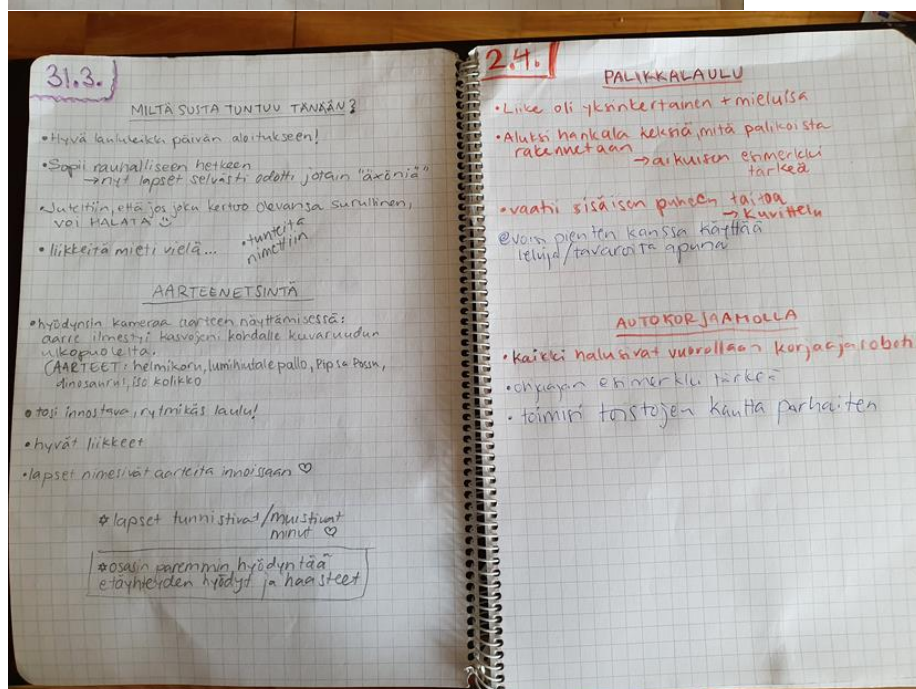 31.3.
MILTÄ SUSTA TUNTUU TÄNÄÄN?
•Hyvä laululeikki päivän aloitukseen!
•Sopii rauhalliseen hetkeen
→nyt lapset selvästi odotti jotain "äxöniä"
•Juteltiin, että jos joku kertoo olevansa surullinen,
voi HALATA ☺
•liikkeitä mieti vielä...
•tunteita
nimettiin
AARTEENETSINTÄ
•hyödynsin kameraa aarteen näyttämisessä:
aarre ilmestyi kasvojeni kohdalle kuvaruudun
ulkopuolelta.
(AARTEET: helmikoru, lumihiutale pallo, Pipsa Possu,
dinosaurus, iso kolikko
•tosi innostava, rytmikäs laulu!
•hyvät liikkeet
•lapset nimesivät aarteita innoissaan ♡
☆lapset tunnistivat/muistivat
minut ♡
☆osasin paremmin hyödyntää
etäyhteyden hyödyt ja haasteet
2.4.
PALIKKALAULU
•Liike oli yksinkertainen + mieluisa
•Aluksi hankala keksiä, mitä palikoista
rakennetaan
→aikuisen esimerkki
tärkeä
•vaatii sisäisen puheen taitoa
→Kuvittelu
voisi pienten kanssa käyttää
leluja/tavaroita apuna
AUTOKORJAAMOLLA
•kaikki halusivat vuorollaan korjaajarobotti
•ohjaajan esimerkki tärkeä
•toimisi toistojen kautta parhaiten